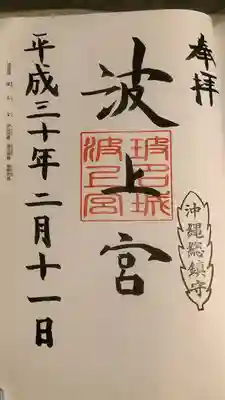 奉拝
沖縄総鎮守
波上宮
波上宮
平成三十年二月十一日